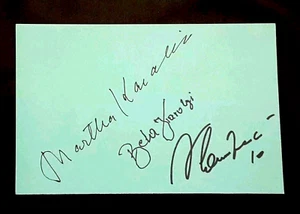 Martha Karolyi
Bela Karolyi
10